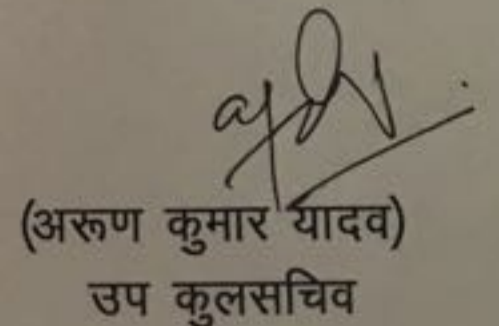 (अरूण कुमार यादव)
उप कुलसचिव